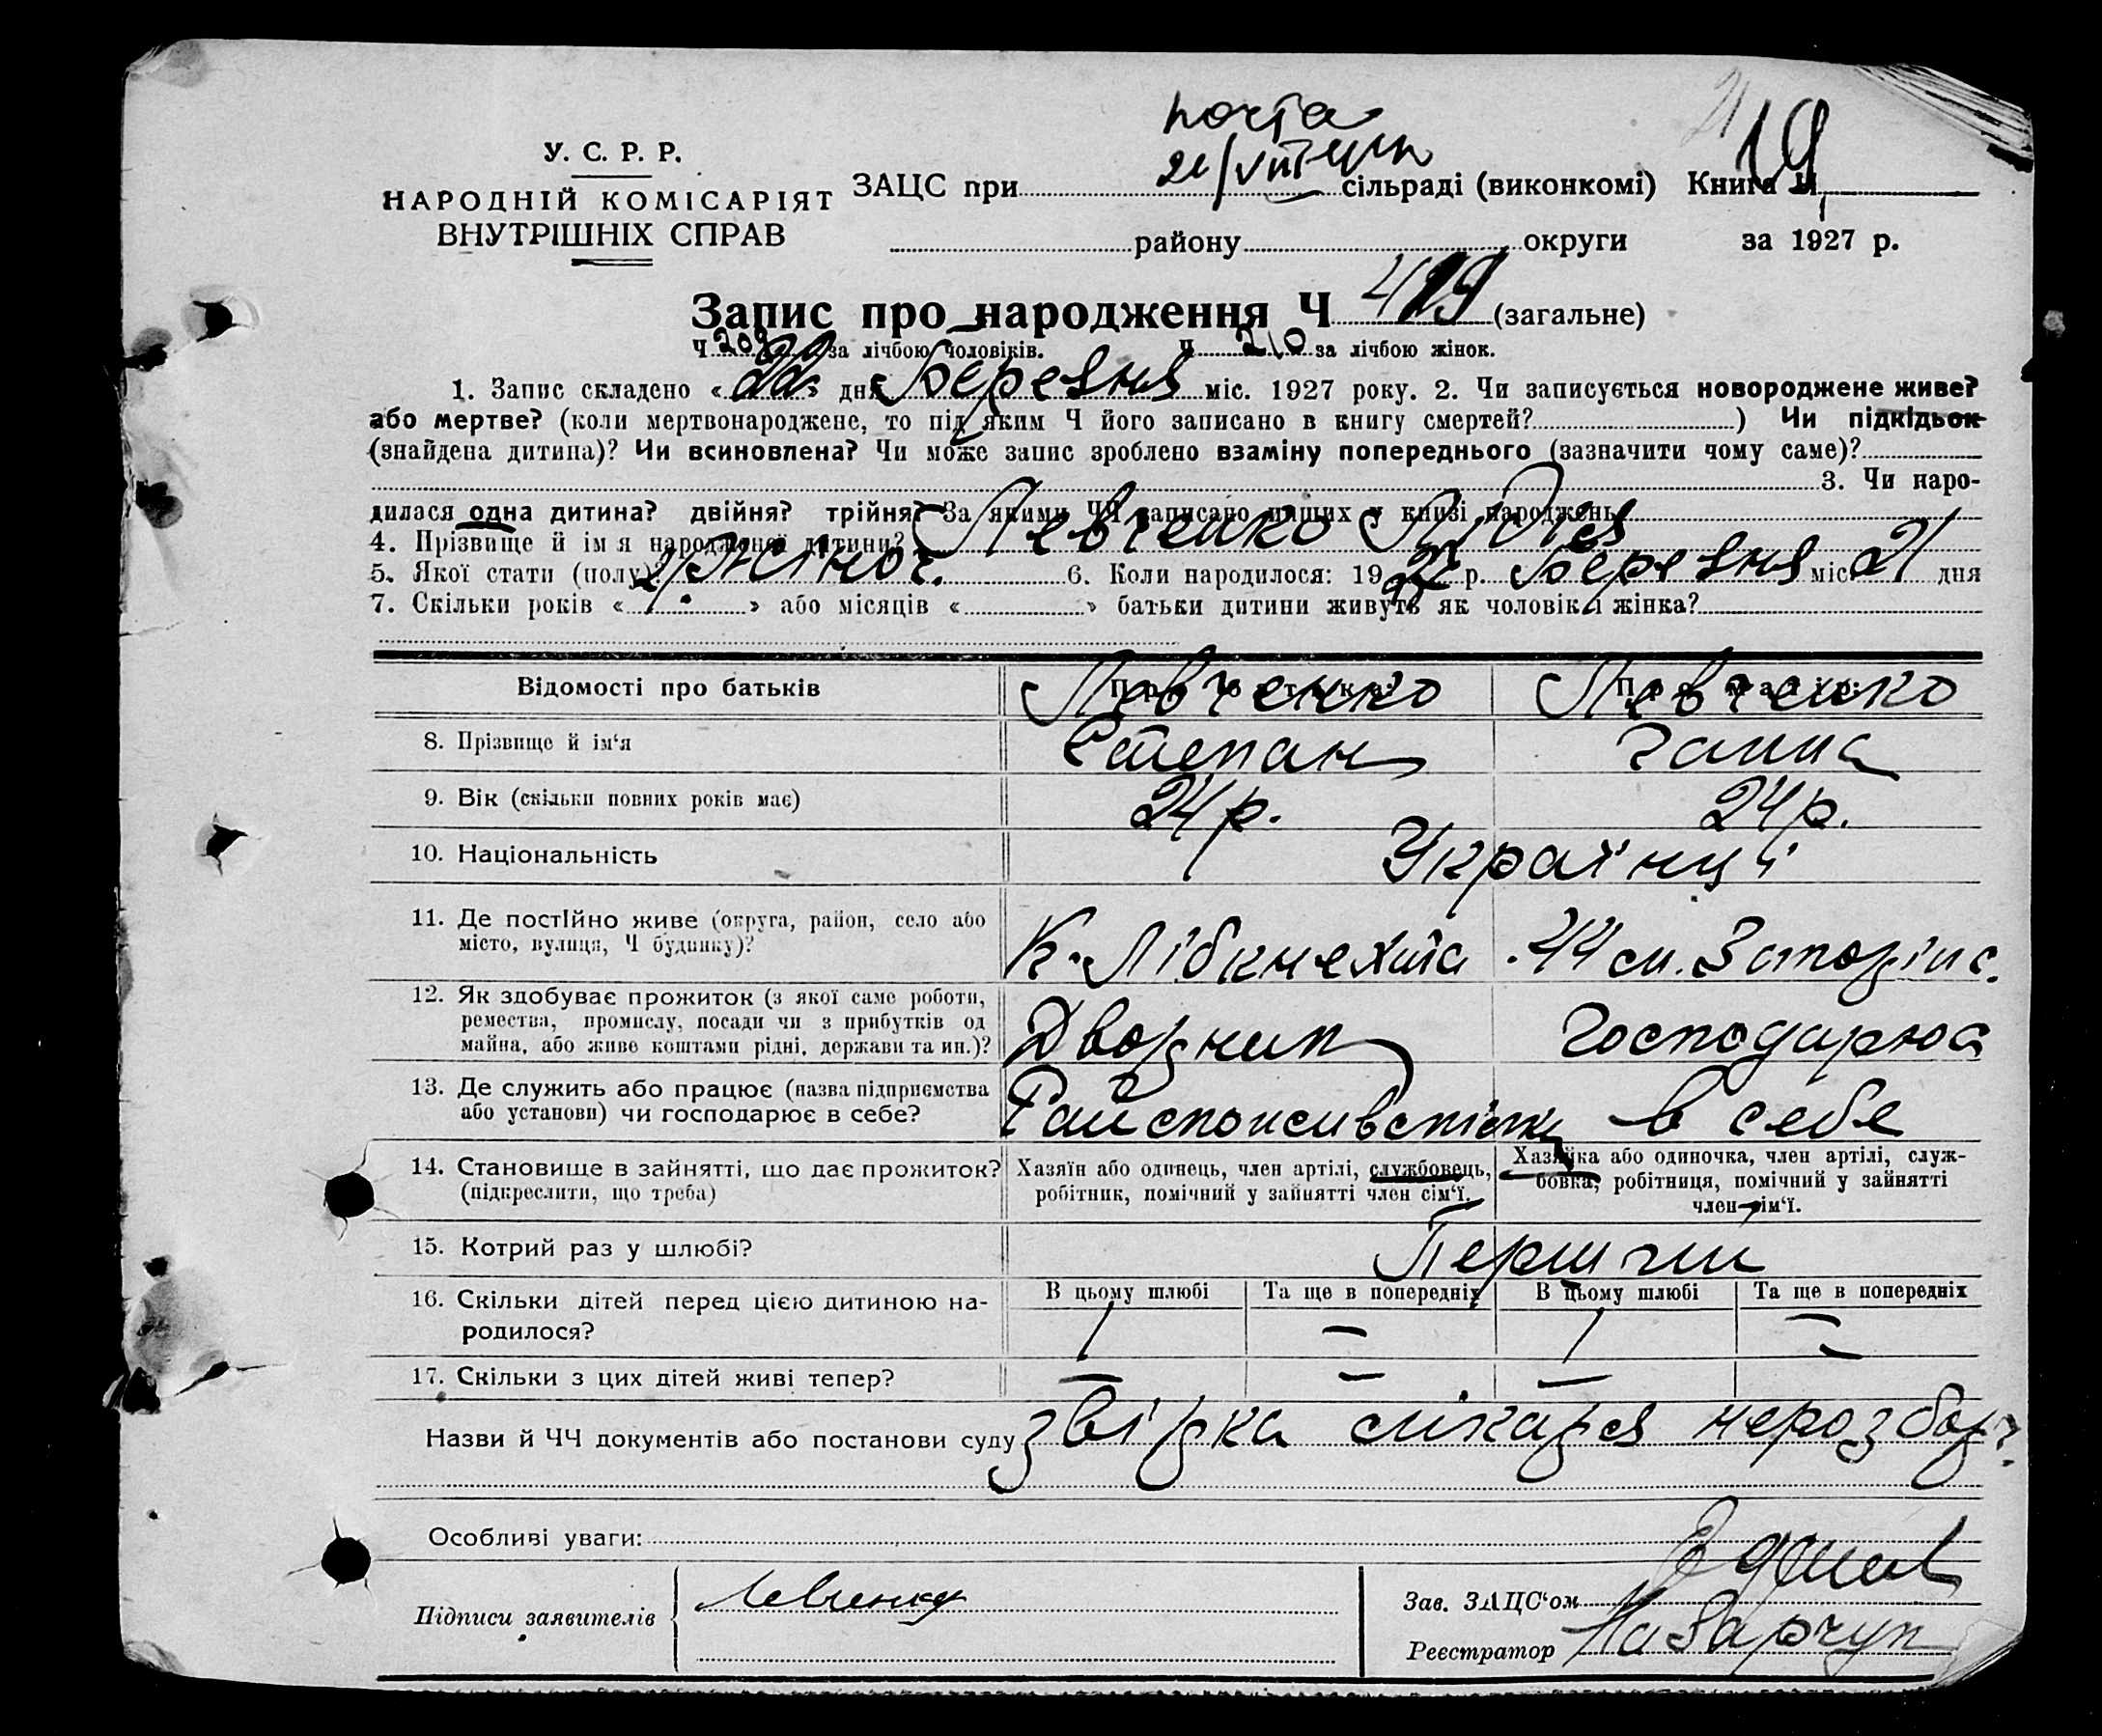 почта
У. С. Р. Р.
НАРОДНІЙ КОМІСАРІЯТ
ВНУТРІШНІХ СПРАВ
ЗАЦС при сільраді (виконкомі) Книга Ч 19
району округи за 1927 р.
Запис про народження Ч 419 (загальне)
Ч 209 за лічбою чоловіків. Ч 210 за лічбою жінок.
1. Запис складено «22» дня Березня міс. 1927 року. 2. Чи записується новороджене живе?
або мертве? (коли мертвонароджене, то під яким Ч його записано в книгу смертей? ) Чи підкідьок
(знайдена дитина)? Чи всиновлена? Чи може запис зроблено взаміну попереднього (зазначити чому саме)?
3. Чи наро-
дилася одна дитина? двійня? трійня? За якими ЧЧ записано инших у книзі народжень
4. Прізвище й ім я народженої дитини? Левченко Лідія
5. Якої стати (полу)? жіноч. 6. Коли народилося: 1927 р. Березня міс 21 дня
7. Скільки років « 2 р. » або місяців « » батьки дитини живуть як чоловік і жінка?
Відомості про батьків Про батька: Про матір:
8. Прізвище й ім‘я Левченко Степан Левченко Ганна
9. Вік (скільки повних років має) 24 р. 24 р.
10. Національність Українці
11. Де постІйно живе (округа, район, село або
місто, вулиця, Ч будинку)? К. Лібкнехта 44
12. Як здобуває прожиток (з якої саме роботи,
ремества, промислу, посади чи з прибутків од
майна, або живе коштами рідні, держави та ин.)? Дворник Господарює
13. Де служить або працює (назва підприємства
або установи) чи господарює в себе? в себе
14. Становище в зайнятті, що дає прожиток?
(підкреслити, що треба)
Хазяїн або одинець, член артілі, службовець,
робітник, помічний у зайнятті член сім‘ї.
Хазяйка або одиночка, член артілі, служ-
бовка, робітниця, помічний у зайнятті
член сім‘ї.
15. Котрий раз у шлюбі? Перший
16. Скільки дітей перед цією дитиною на-
родилося?
В цьому шлюбі Та ще в попередніх В цьому шлюбі Та ще в попередніх
1 — 1 —
17. Скільки з цих дітей живі тепер? — — — —
Назви й ЧЧ документів або постанови суду звірка лікаря нерозбор.
Особливі уваги:
Підписи заявителів Левченко
Зав. ЗАЦС‘ом
Реєстратор Назарчук